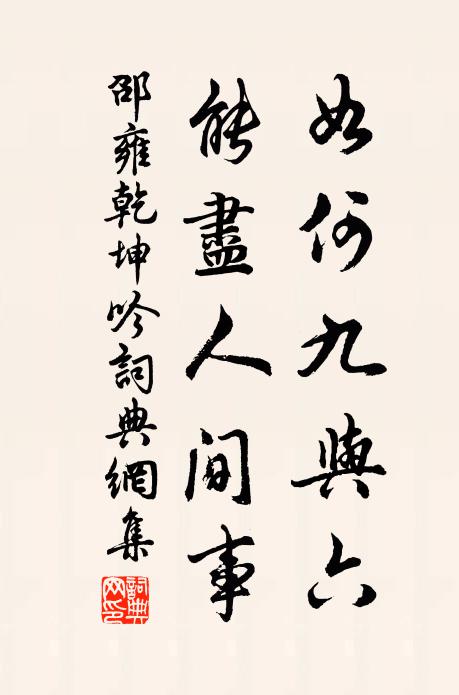 如何九與六
能盡人間事
邵雍乾坤吟詞典網集
詞典網印